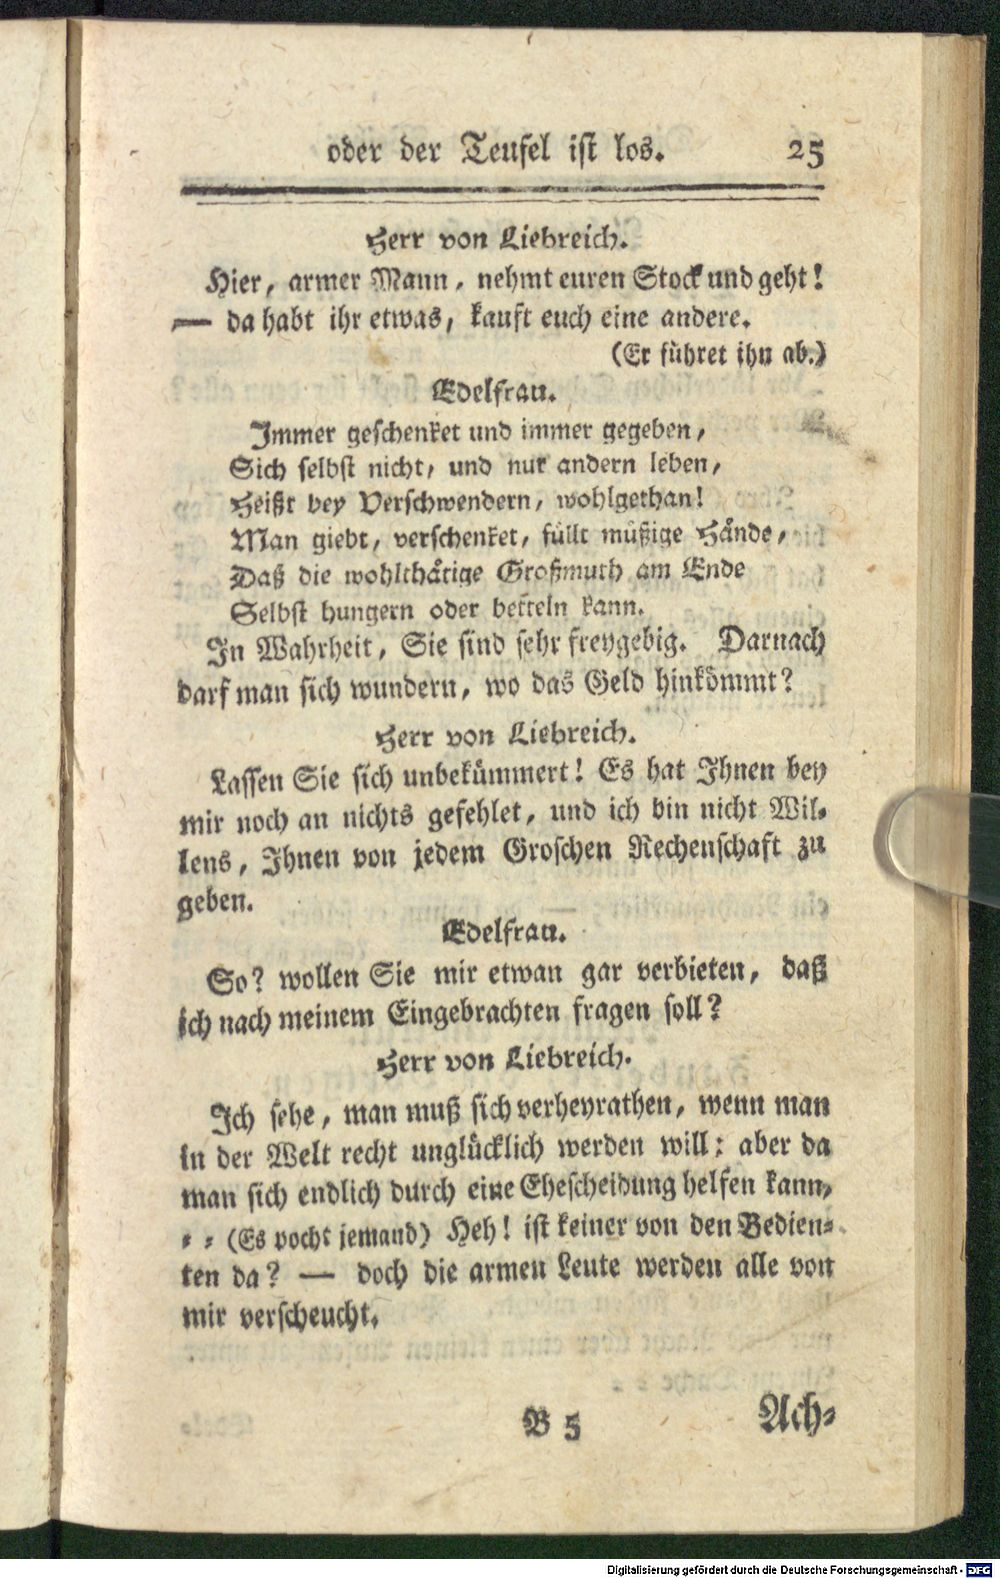 oder der Teufel ist los. 25
Herr von Liebreich.
Hier, armer Mann, nehmt euren Stock und geht!
— da habt ihr etwas, kauft euch eine andere.
(Er führet ihn ab.)
Edelfrau.
Immer geschenket und immer gegeben,
Sich selbst nicht, und nur andern leben,
Heißt bey Verschwendern, wohlgethan!
Man giebt, verschenket, füllt müßige Hände,
Daß die wohlthätige Großmuth am Ende
Selbst hungern oder betteln kann.
In Wahrheit, Sie sind sehr freygebig. Darnach
darf man sich wundern, wo das Geld hinkömmt?
Herr von Liebreich.
Lassen Sie sich unbekümmert! Es hat Ihnen bey
mir noch an nichts gefehlet, und ich bin nicht Wil-
lens, Ihnen von jedem Groschen Rechenschaft zu
geben.
Edelfrau.
So? wollen Sie mir etwan gar verbieten, daß
ich nach meinem Eingebrachten fragen soll?
Herr von Liebreich.
Ich sehe, man muß sich verheyrathen, wenn man
in der Welt recht unglücklich werden will: aber da
man sich endlich durch eine Ehescheidung helfen kann,
= = (Es pocht jemand) Heh! ist keiner von den Bedien-
ten da? — doch die armen Leute werden alle von
mir verscheucht.
B 5 Ach-
Digitalisierung gefördert durch die Deutsche Forschungsgemeinschaft - DFG